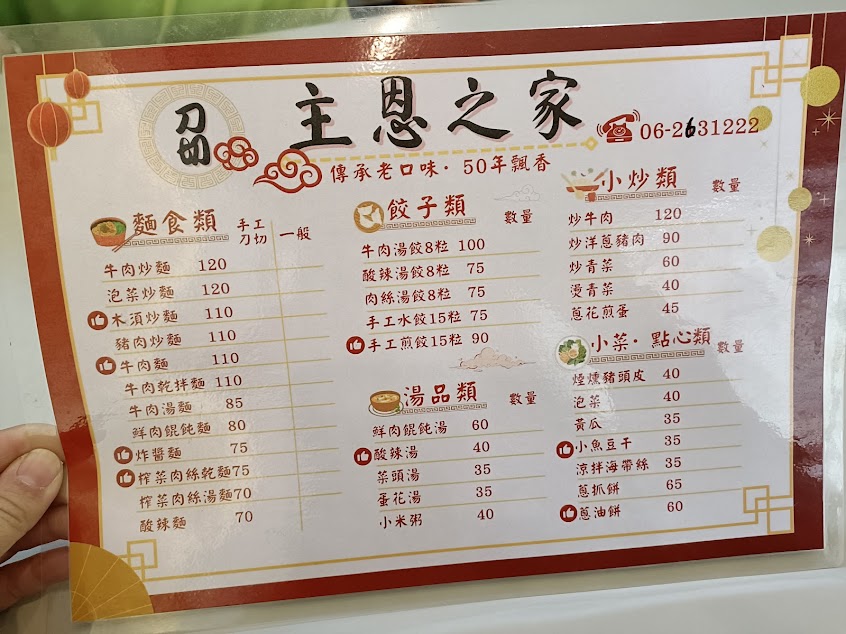 刀切
主恩之家
06-2631222
傳承老口味·50年飄香
麵食類 手工刀切 一般
牛肉炒麵 120
泡菜炒麵 120
木須炒麵 110
豬肉炒麵 110
牛肉麵 110
牛肉乾拌麵 110
牛肉湯麵 85
鮮肉餛飩麵 80
炸醬麵 75
榨菜肉絲乾麵 75
榨菜肉絲湯麵 70
酸辣麵 70
餃子類 數量
牛肉湯餃8粒 100
酸辣湯餃8粒 75
肉絲湯餃8粒 75
手工水餃15粒 75
手工煎餃15粒 90
湯品類 數量
鮮肉餛飩湯 60
酸辣湯 40
菜頭湯 35
蛋花湯 35
小米粥 40
小炒類 數量
炒牛肉 120
炒洋蔥豬肉 90
炒青菜 60
燙青菜 40
蔥花煎蛋 45
小菜·點心類 數量
煙燻豬頭皮 40
泡菜 40
黃瓜 35
小魚豆干 35
涼拌海帶絲 35
蔥抓餅 65
蔥油餅 60